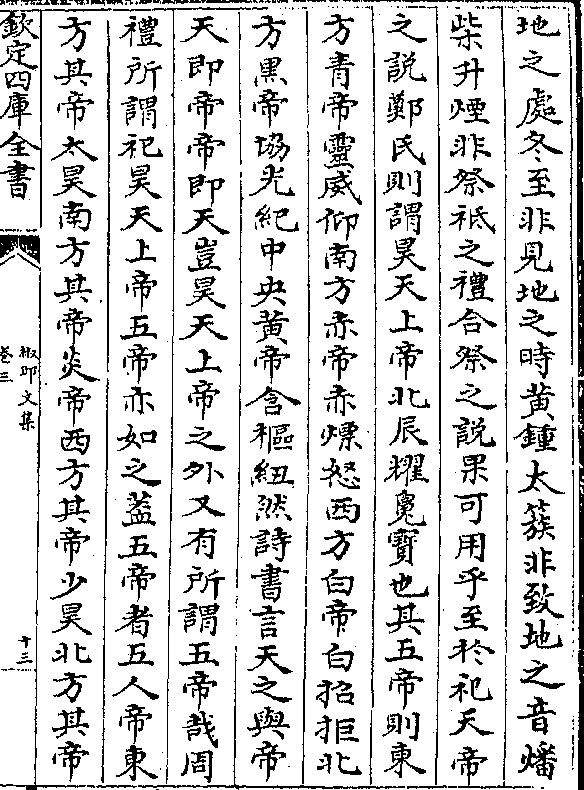 地之處冬至非見地之時黄鍾太簇非致地之音燔
柴升煙非祭祗之禮合祭之説果可用乎至於祀天帝
之説鄭氏則謂昊天上帝北辰耀魄寳也其五帝則東
方青帝靈威仰南方赤帝赤熛怒西方白帝白招拒北
方黒帝協光紀中央黄帝含樞紐然詩書言天之與帝
天即帝帝即天豈昊天上帝之外又有所謂五帝哉周
禮所謂祀昊天上帝五帝亦如之葢五帝者五人帝東
方其帝太昊南方其帝炎帝西方其帝少昊北方其帝
欽定四庫全書
椒邱文集
卷三
十三